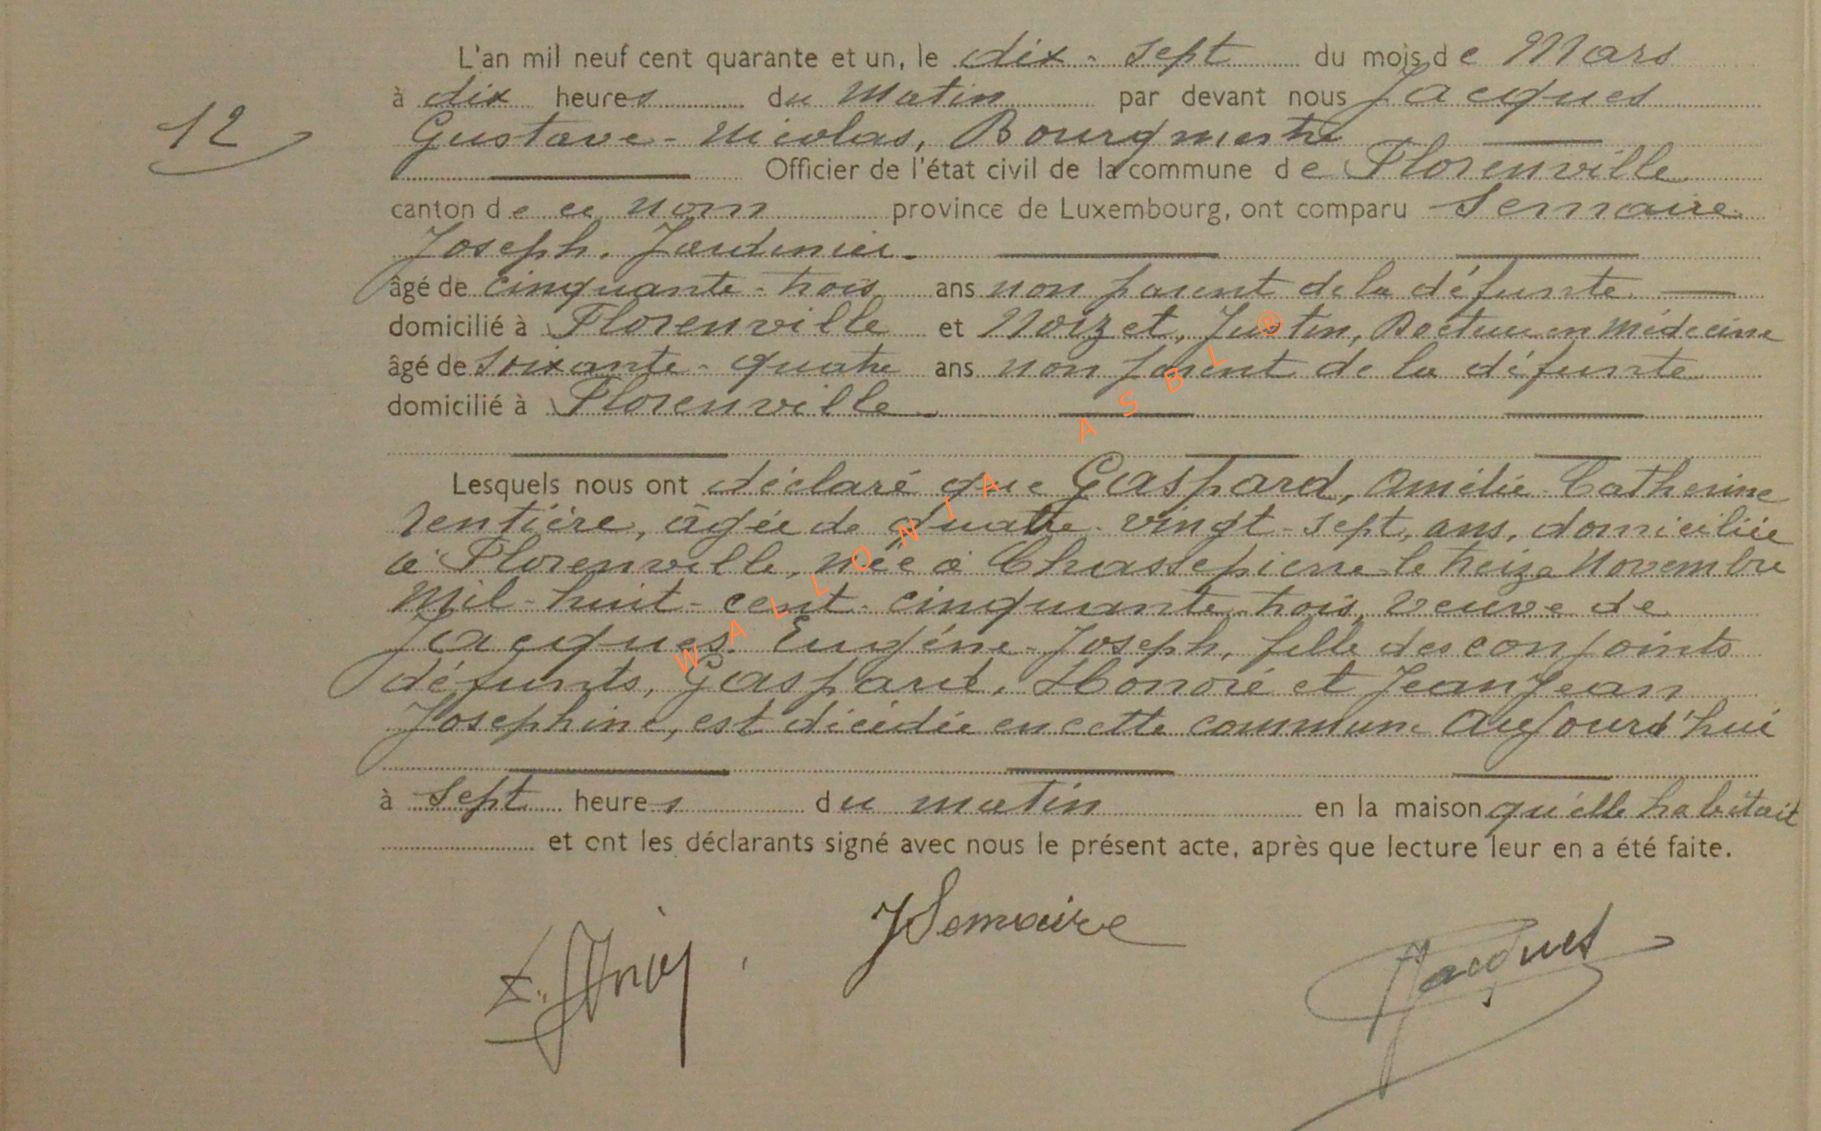 L'an mil neuf cent quarante et un, le dix-sept du mois de Mars
à dix heures du Matin par devant nous Jacques
12
Gustave-Nicolas, Bourgmestre
Officier de l'état civil de la commune de Florenville
canton de ce nom province de Luxembourg, ont comparu Semaire
Joseph. Jardinier.
âgé de cinquante-trois ans non parent de la défunte.
domicilié à Florenville et Noizet, Justin, Docteur en Médecine
âgé de soixante-quatre ans non parent de la défunte
domicilié à Florenville.
Lesquels nous ont déclaré que Gaspard, Amélie-Catherine
rentière, âgée de quatre-vingt-sept, ans, domiciliée
à Florenville, née à Chassepierre le treize Novembre
Mil-huit-cent-cinquante-trois, veuve de
Jacques Eugène-Joseph, fille des conjoints
défunts, Gaspard, Honoré et Jeanjean
Josephine, est décédée en cette commune aujourd'hui
à sept heures du matin en la maison qu'elle habitait
et ont les déclarants signé avec nous le présent acte, après que lecture leur en a été faite.
JSemaire
Jacques
WALLONIA ASBL ®